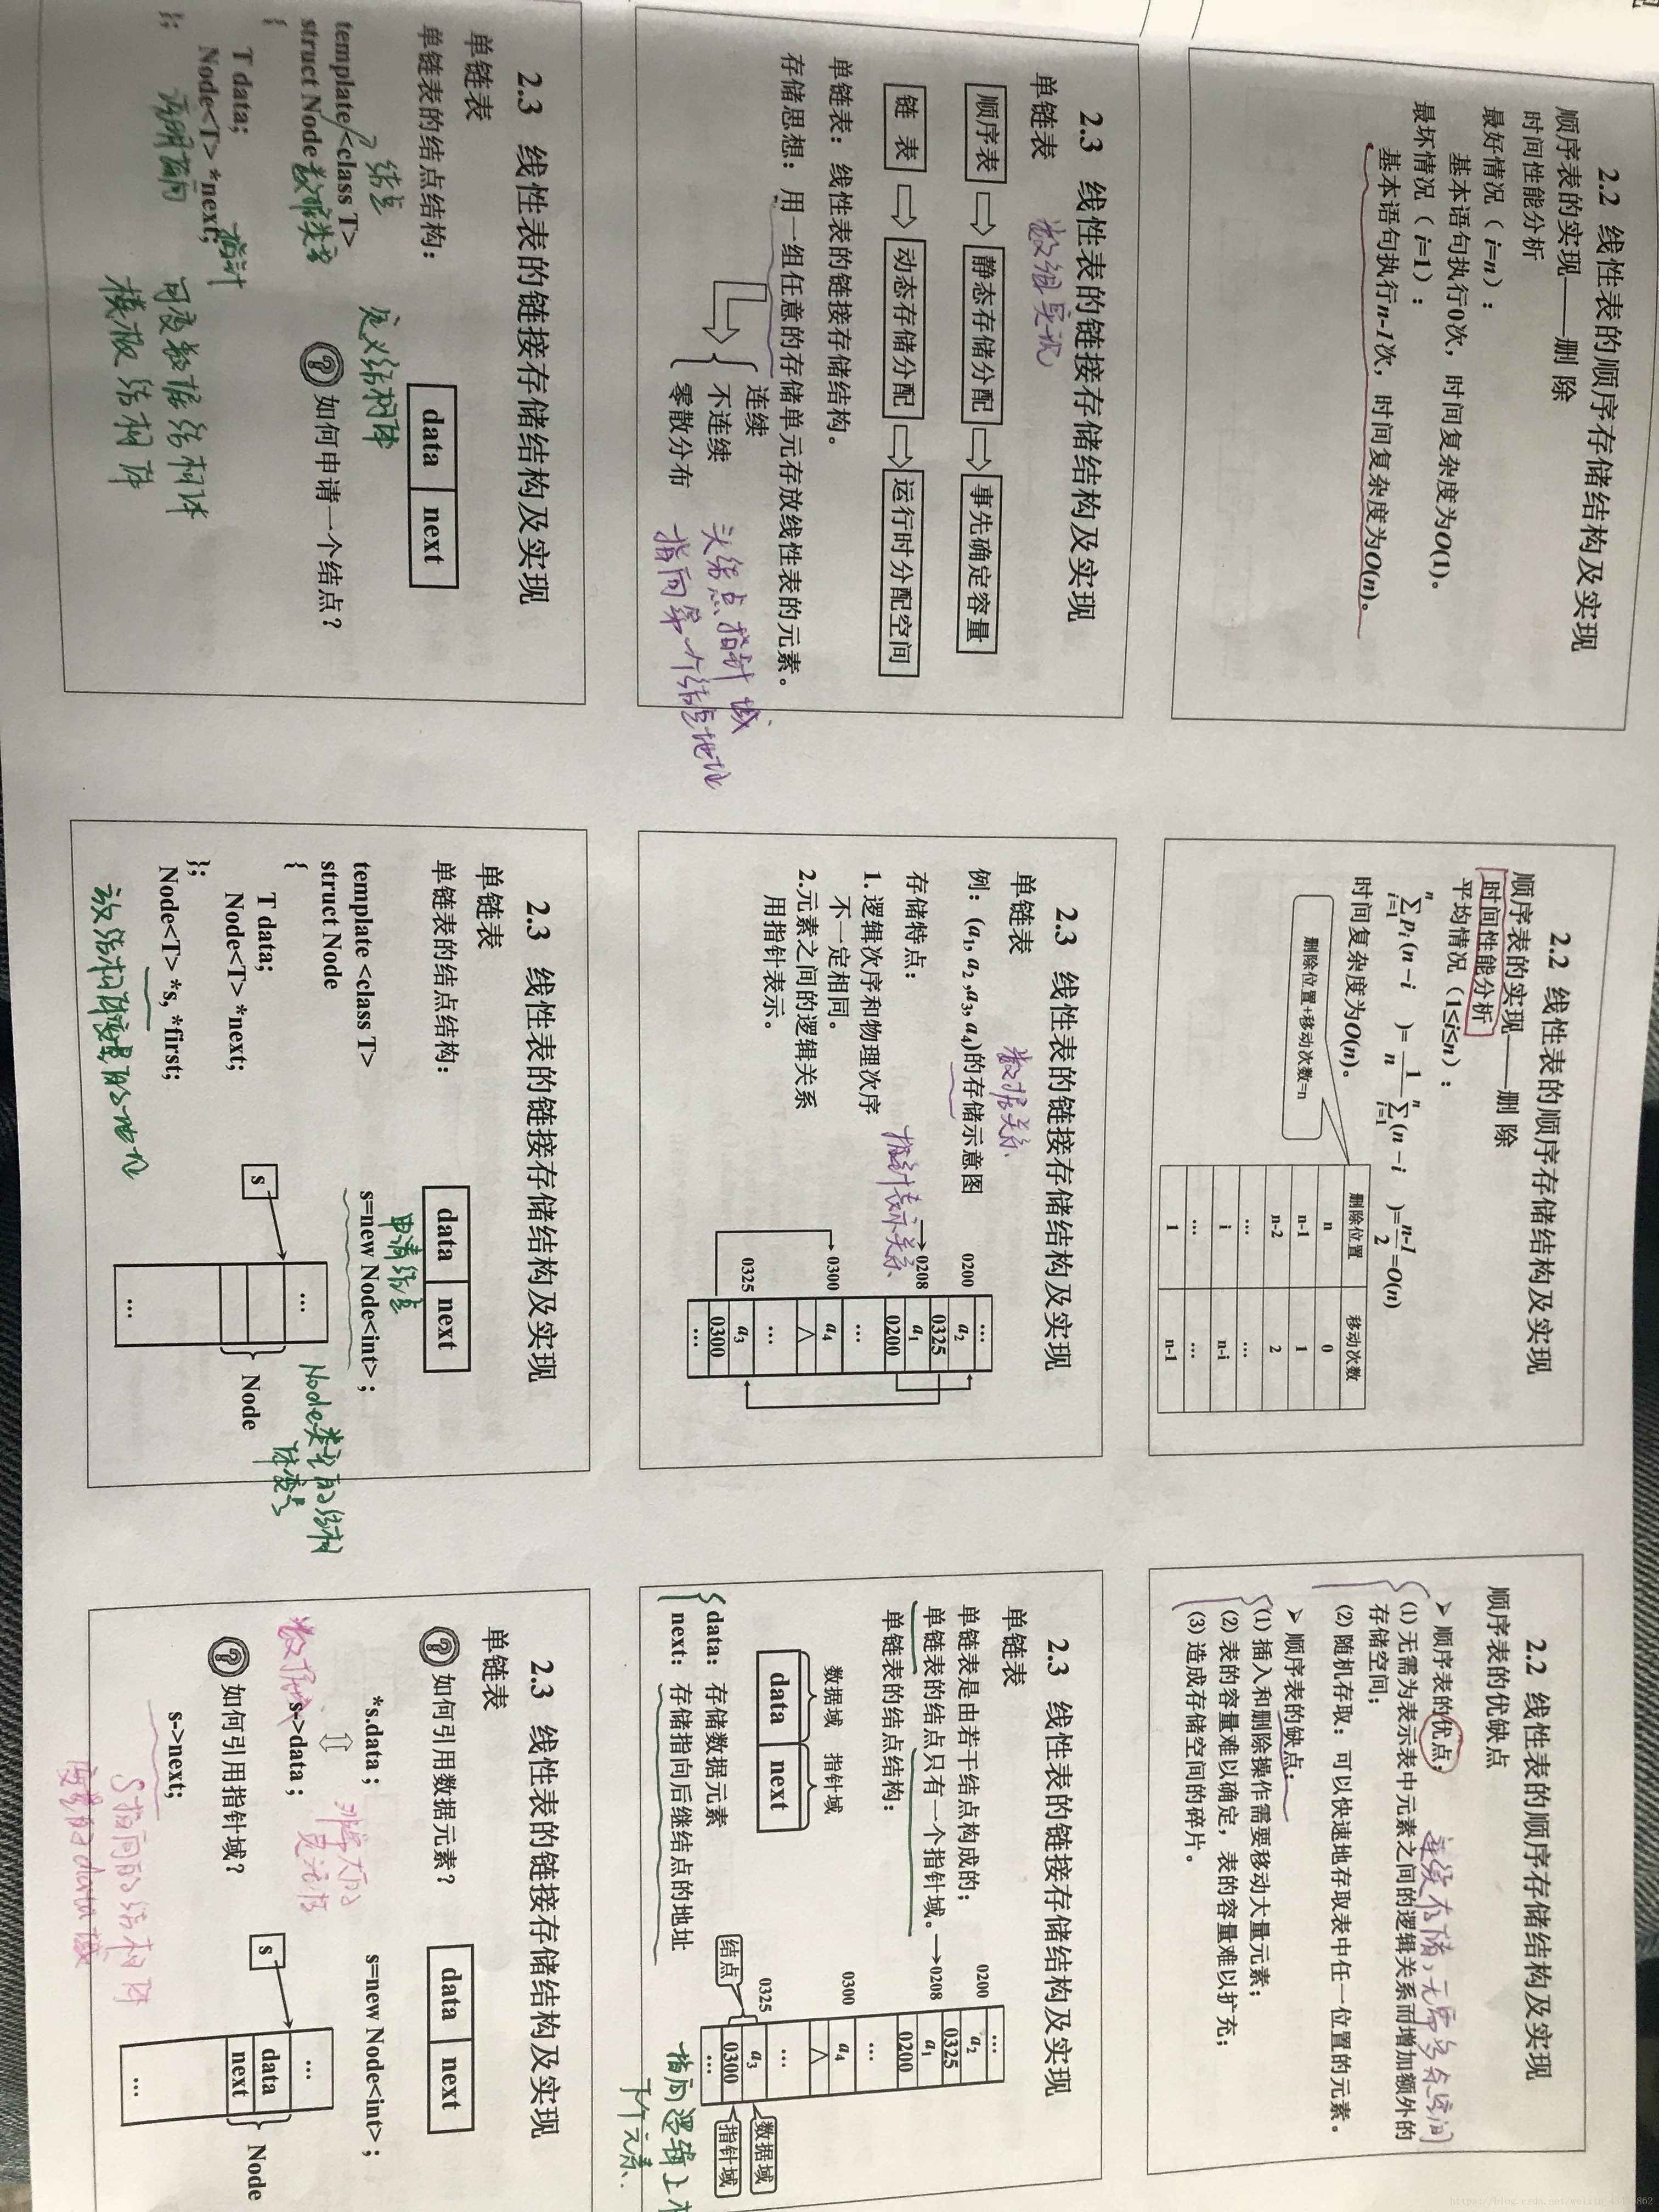 2.2 线性表的顺序存储结构及实现
顺序表的实现——删 除
时间性能分析
最好情况（i=n）：
基本语句执行0次，时间复杂度为O(1)。
最坏情况（i=1）：
基本语句执行n-1次，时间复杂度为O(n)。
2.2 线性表的顺序存储结构及实现
顺序表的实现——删 除
时间性能分析
平均情况（1≤i≤n）：
n
∑pi(n-i )=1/n∑(n-i )=n-1/2=O(n)
i=1
时间复杂度为O(n)。
删除位置+移动次数=n
删除位置 移动次数
n 0
n-1 1
n-2 2
… …
i n-i
… …
1 n-1
2.2 线性表的顺序存储结构及实现
顺序表的优缺点
➢ 顺序表的优点：
连续存储，无需多点空间
(1) 无需为表示表中元素之间的逻辑关系而增加额外的
存储空间；
(2) 随机存取：可以快速地存取表中任一位置的元素。
➢ 顺序表的缺点：
(1) 插入和删除操作需要移动大量元素；
(2) 表的容量难以确定，表的容量难以扩充；
(3) 造成存储空间的碎片。
2.3 线性表的链接存储结构及实现
单链表
数组实现
顺序表 静态存储分配 事先确定容量
链 表 动态存储分配 运行时分配空间
单链表：线性表的链接存储结构。
存储思想：用一组任意的存储单元存放线性表的元素。
连续
不连续
零散分布
头结点指针域
指向第一个结点地址
2.3 线性表的链接存储结构及实现
单链表
数据关系
例：(a1, a2 ,a3, a4)的存储示意图
存储特点：
1. 逻辑次序和物理次序
不一定相同。
2.元素之间的逻辑关系
用指针表示。
指针表示关系
0200
0208
0300
0325
…
a2
0325
a1
0200
…
a4
∧
…
a3
0300
…
2.3 线性表的链接存储结构及实现
单链表
单链表是由若干结点构成的；
单链表的结点只有一个指针域。
单链表的结点结构：
数据域 指针域
data next
data：存储数据元素
next：存储指向后继结点的地址
指向逻辑上
下个元素
0200
0208
0300
0325
结点
…
a2
0325
a1
0200
…
a4
∧
…
a3
0300
…
数据域
指针域
2.3 线性表的链接存储结构及实现
单链表
单链表的结点结构：
data next
template <class T>
结点
定义结构体
struct Node
数据类型
{
T data;
Node<T> *next;
指针
};
可变数据结构体
模板结构体
如何申请一个结点？
2.3 线性表的链接存储结构及实现
单链表
单链表的结点结构：
data next
申请结点
template <class T>
struct Node
{
T data;
Node<T> *next;
};
Node<T> *s, *first;
放结构体变量的地址
s=new Node<int> ;
s
…
…
Node
Node类型的结构
体变量
2.3 线性表的链接存储结构及实现
单链表
如何引用数据元素？
data next
*s.data ;
s->data ;
数据域
s=new Node<int> ;
如何引用指针域？
s->next;
S指向的结构体
变量的data域
s
…
data
next
…
Node